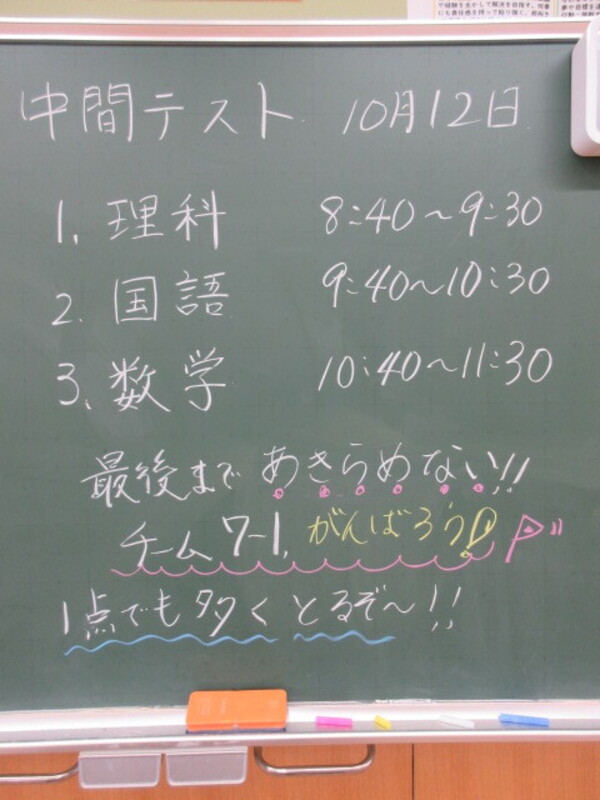 中間テスト 10月12日
1. 理科 8:40〜9:30
2. 国語 9:40〜10:30
3. 数学 10:40〜11:30
最後まで あきらめない!!
チーム7-1, がんばろう!
1点でも多く とるぞ〜!!